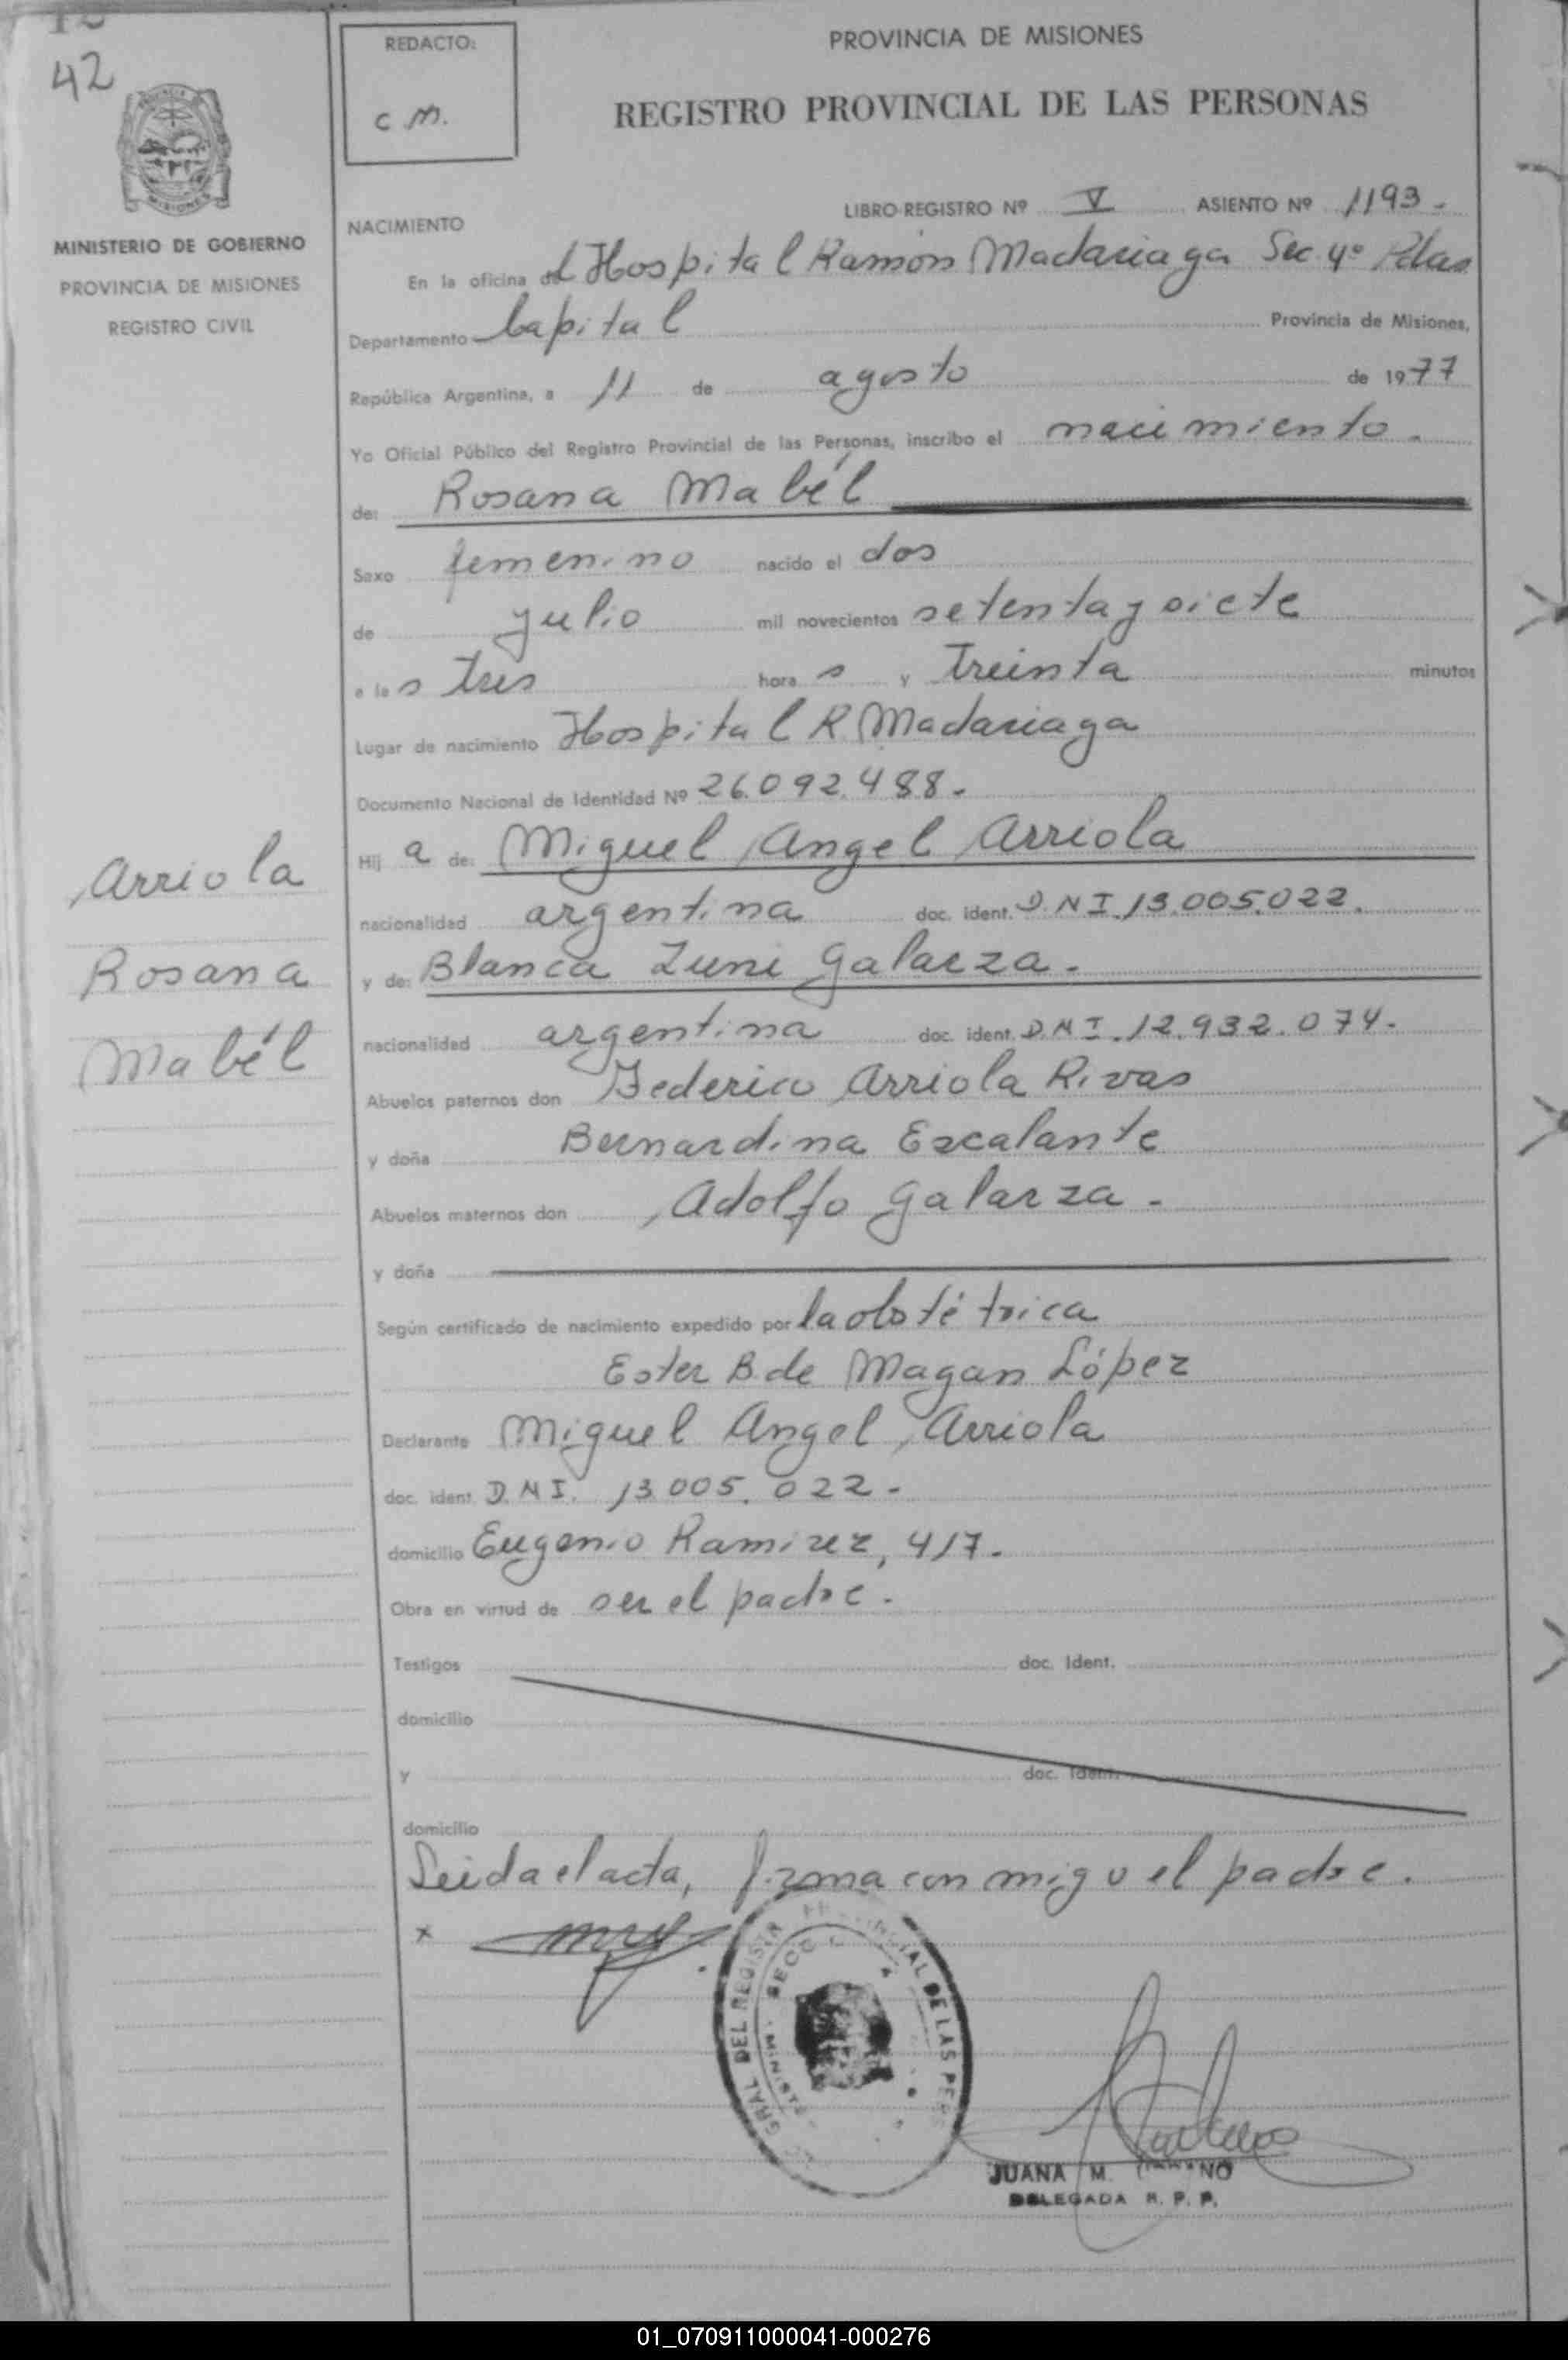 42
REDACTO:
C.M.
PROVINCIA DE MISIONES
REGISTRO PROVINCIAL DE LAS PERSONAS
MISIONES
MINISTERIO DE GOBIERNO
PROVINCIA DE MISIONES
REGISTRO CIVIL
LIBRO-REGISTRO Nº V ASIENTO Nº 1193.
NACIMIENTO
En la oficina del Hospital Ramón Madariaga Sec 4º Pdas
Departamento Capital Provincia de Misiones,
República Argentina, a 11 de agosto de 1977
Yo Oficial Público del Registro Provincial de las Personas, inscribo el nacimiento.
de: Rosana Mabél
Sexo femenino nacido el dos
de julio mil novecientos setenta y siete
a las tres horas y treinta minutos
Lugar de nacimiento Hospital R. Madariaga
Documento Nacional de Identidad Nº 26.092.488.
Hija de: Miguel Angel Arriola
nacionalidad argentina doc. ident. D.N.I. 13.005.022.
y de: Blanca Zuni Galarza.
nacionalidad argentina doc. ident. D.N.I. 12.932.074.
Abuelos paternos don Federico Arriola Rivas
y doña Bernardina Escalante
Abuelos maternos don Adolfo Galarza.
y doña
Según certificado de nacimiento expedido por la obstétrica
Ester B. de Magan López
Declarante Miguel Angel Arriola
doc. ident. D.N.I. 13.005.022.
domicilio Eugenio Ramirez, 417.
Obra en virtud de ser el padre.
Testigos doc. Ident.
domicilio
y doc. Ident.
domicilio
Leida el acta, firma con migo el padre.
x
Arriola
Rosana
Mabél
GRAL DEL REGISTR PROVINCIAL DE LAS PERS
JUANA M.
DELEGADA R. P. P.
01_070911000041-000276